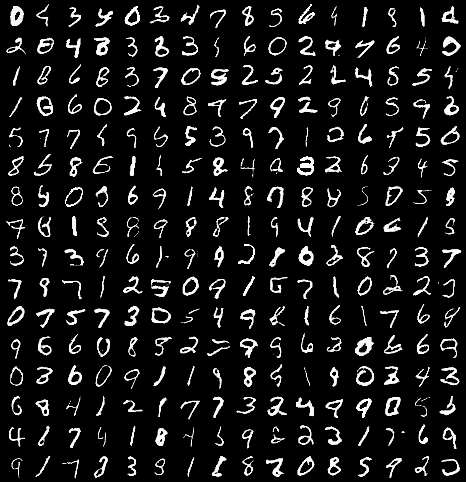 0 4 3 4 0 3 4 7 8 5 6 4 1 9 1 2
2 0 4 8 3 8 3 4 6 0 2 9 7 6 4 0
1 8 6 8 3 7 0 5 2 5 2 2 4 8 5 4
1 8 6 0 2 4 8 9 7 9 2 9 0 5 9 6
5 7 7 4 9 6 5 3 9 7 1 0 6 9 5 0
8 5 8 6 1 4 5 8 4 4 3 2 6 3 4 5
8 4 0 5 6 9 1 4 8 7 8 8 5 0 5 8
7 8 1 8 8 9 8 8 1 9 4 1 0 6 1 5
3 7 3 9 6 1 9 9 2 8 0 8 8 7 3 7
7 9 7 1 2 5 0 9 1 5 7 1 0 2 2 3
0 7 5 7 3 0 5 4 9 8 1 6 1 7 6 9
9 6 6 0 8 5 2 5 9 9 6 3 0 6 6 9
0 3 6 0 9 1 1 9 8 4 1 9 0 3 4 3
6 8 4 1 2 1 7 7 3 2 4 9 9 0 5 5
4 8 7 4 1 8 4 5 9 8 2 3 1 7 6 9
9 1 7 3 3 9 1 8 8 7 0 8 5 9 2 0